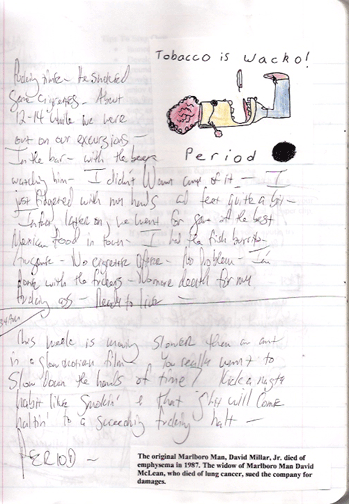 Tobacco is Wacko!
Period
some cigarettes - About
12-14 while we were
out on our excursions -
In the bar - with the
watching him - I didn't of it - I
just with my hands and feet quite a bit -
later on, we went for some of the best
Mexican food in town - I had the fish burrito -
- No cigarette - No problem - I'm
done with the - No more death for my
ass - Ready to live -
This week is moving slower than an ant
in a slow motion film - You really want to
Slow down the hands of time? Kick a nasty
habit like Smokin' & that shit will come
haltin' to a fucking halt -
PERIOD -
The original Marlboro Man, David Millar, Jr. died of
emphysema in 1987. The widow of Marlboro Man David
McLean, who died of lung cancer, sued the company for
damages.